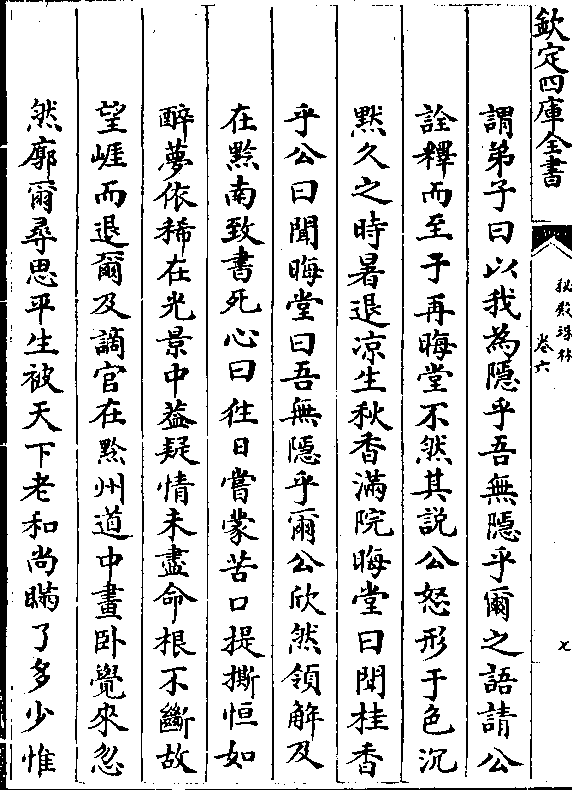 欽定四庫全書
秘殿珠林
卷六
七
謂弟子曰以我為隱乎吾無隱乎爾之語請公
詮釋而至于再晦堂不然其説公怒形于色沉
黙久之時暑退凉生秋香滿院晦堂曰聞桂香
乎公曰聞晦堂曰吾無隱乎爾公欣然領解及
在黔南致書死心曰徃日嘗蒙苦口提撕恒如
醉夢依稀在光景中葢疑情未盡命根不斷故
望崖而退爾及謫官在黔州道中晝卧覺來忽
然廓爾尋思平生被天下老和尚瞞了多少惟